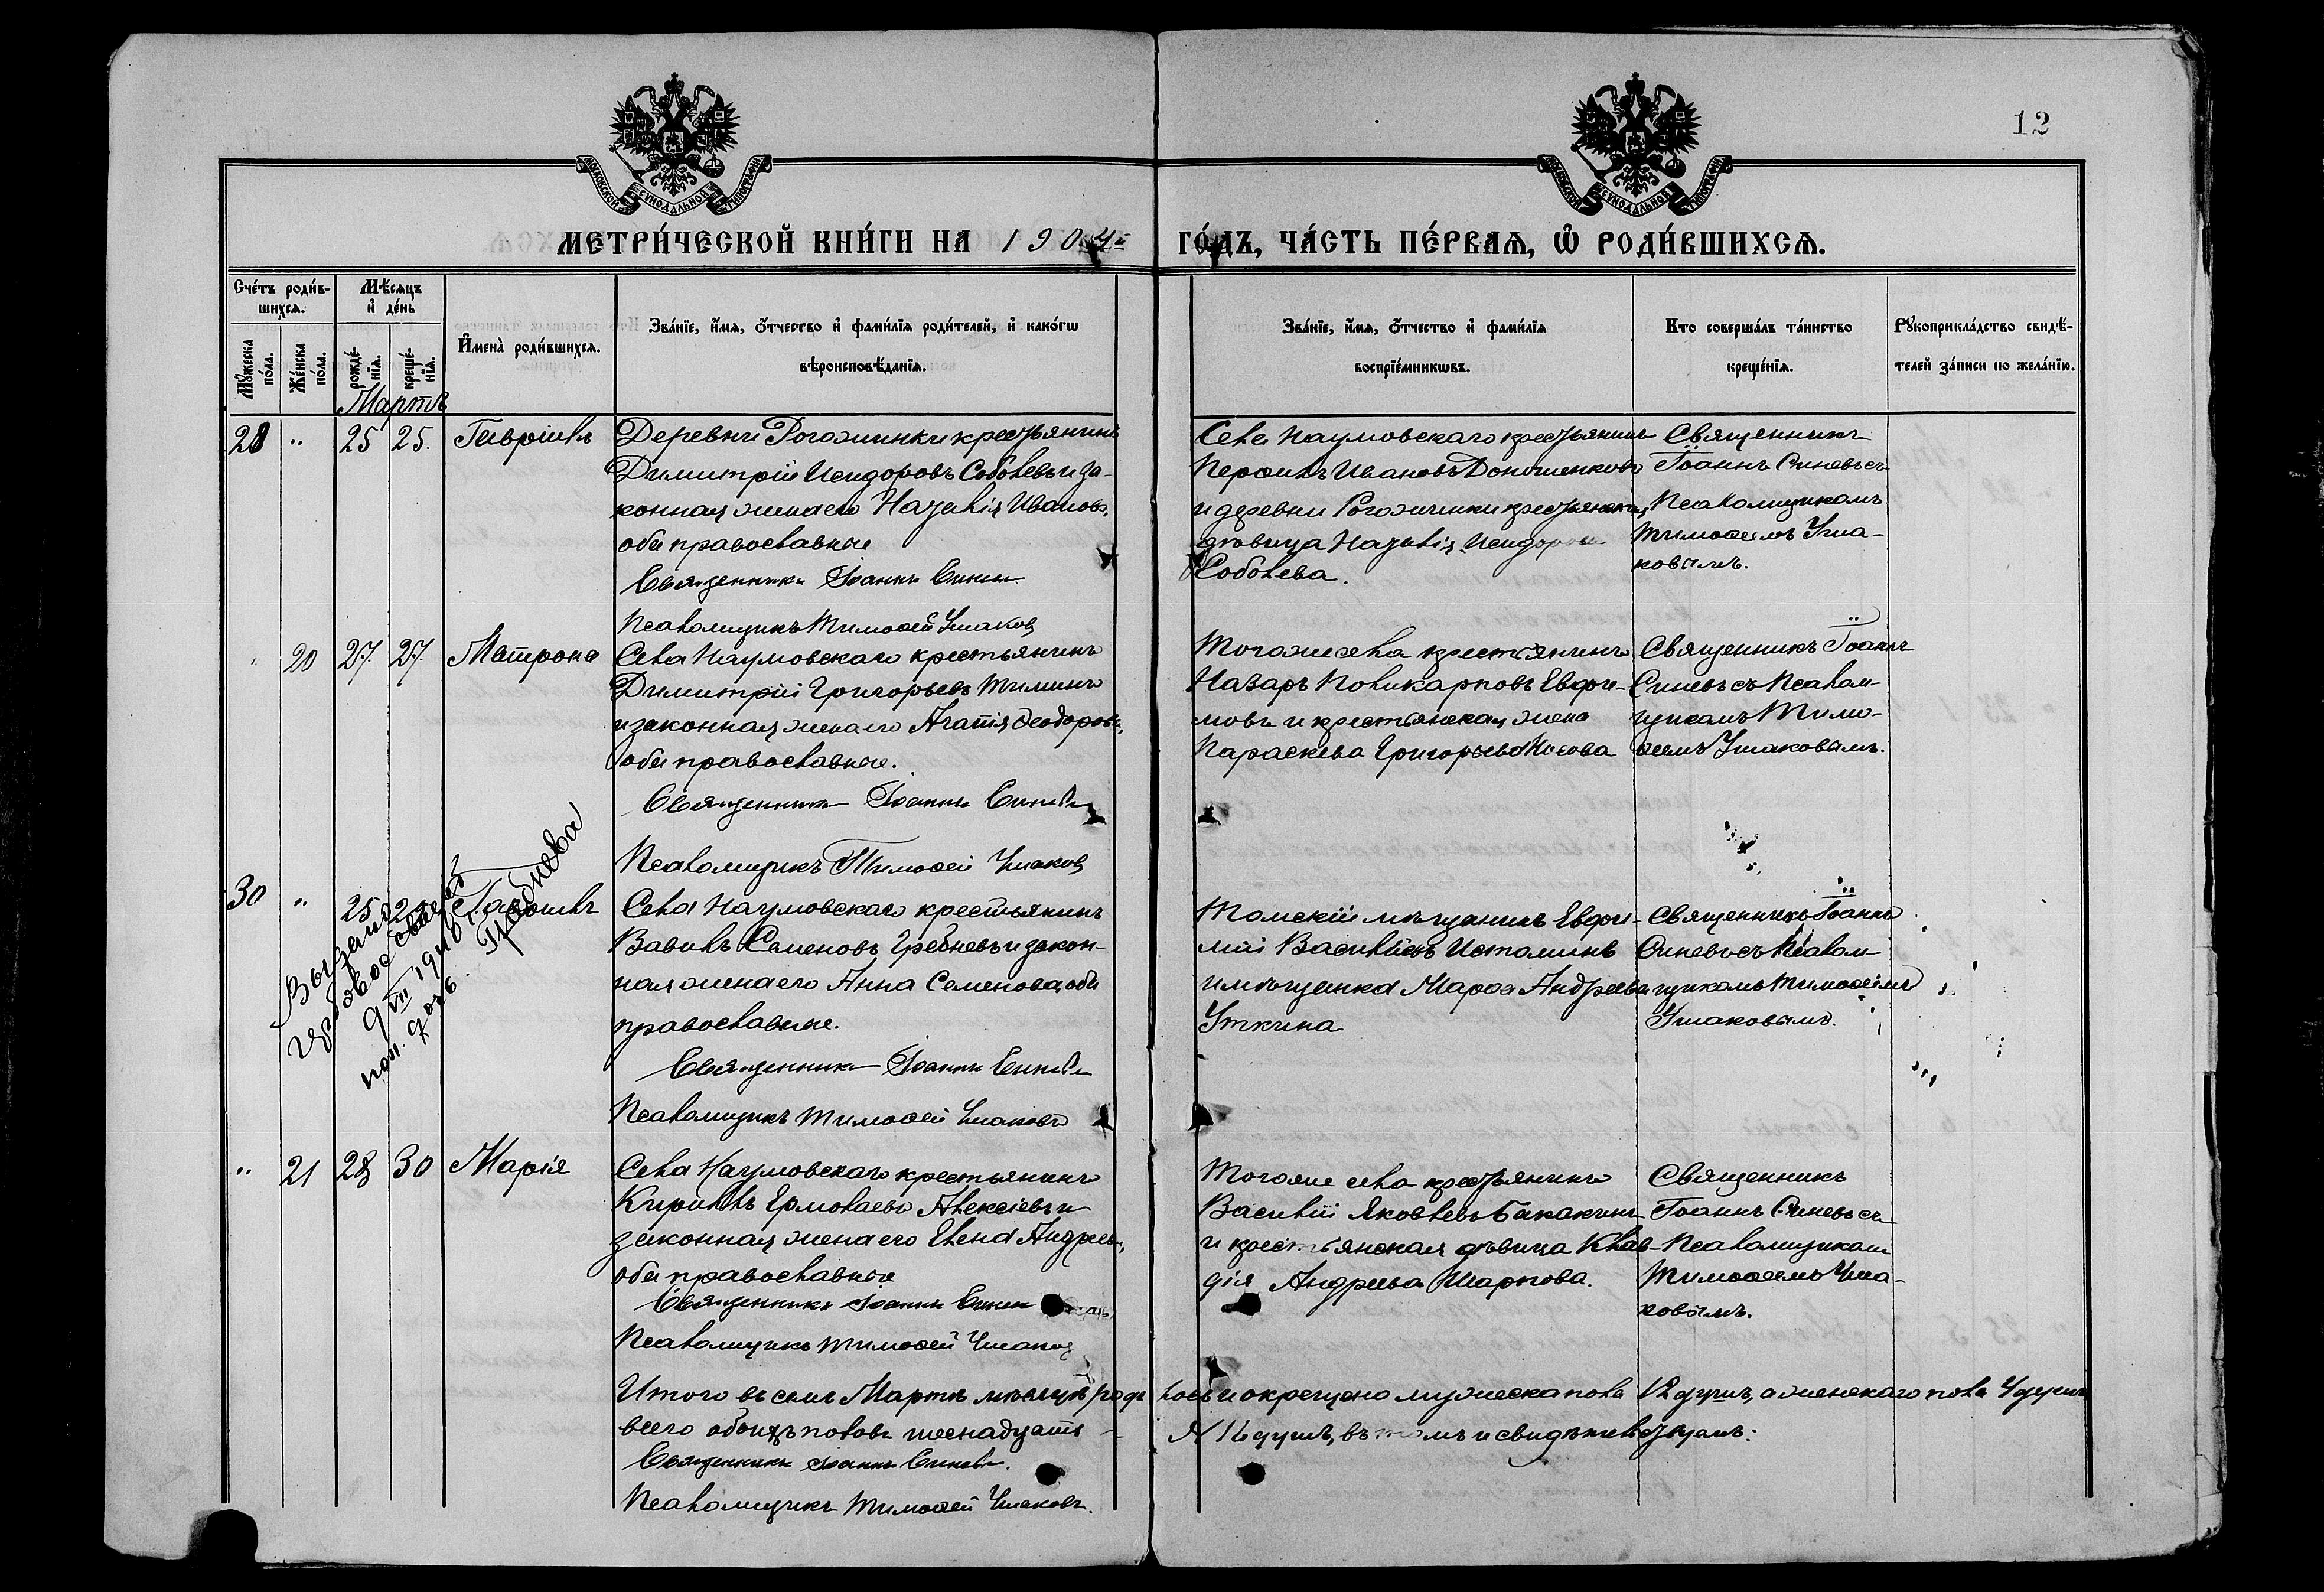 12
МОСКОВСКОЙ СѴНОДАЛЬНОЙ ТИПОГРАФІИ
МОСКОВСКОЙ СѴНОДАЛЬНОЙ ТИПОГРАФІИ
МЕТРИ́ЧЕСКОЙ КНИ́ГИ НА 1904й ГО́ДЪ, ЧА́СТЬ ПЕ́РВАѦ, Ѽ РОДИ́ВШИХСѦ.
Сче́тъ роди́в-
шихсѧ.
Мѣ́сѧцъ
и҆ де́нь
Мꙋ́жеска
по́ла.
Же́нска
по́ла.
рожде́-
нїѧ.
креще́-
нїѧ.
И҆мена̀ роди́вшихсѧ.
Зва́нїе, и҆́мѧ, ѻ҆́тчество и҆ фами́лїѧ роди́телей, и҆ како́гѡ
вѣроисповѣ́данїѧ.
Зва́нїе, и҆́мѧ, ѻ҆́тчество и҆ фами́лїѧ
воспрїе́мникѡвъ.
Кто соверша́лъ та́инство
креще́нїѧ.
Рꙋкоприкла́дство свидѣ́-
телей за́писи по жела́нїю.
Мартъ
28 " 25 25. Гавріилъ
Деревни Рогожинки крестьянинъ
Димитрій Исидоровъ Соболевъ и за-
конная жена его Назалія Иванова,
оба православные
Священникъ Іоаннъ Синевъ
Псаломщикъ Тимоѳей Ушаковъ
Села Наумовскаго крестьянинъ
Ивановъ
и деревни Рогожинки крестьянская
дѣвица Исидорова
Соболева.
Священникъ
Іоаннъ Синевъ съ
Псаломщикомъ
Тимоѳеемъ Уша-
ковымъ.
20 27. 27. Матрона
Села Наумовскаго крестьянинъ
Димитрій Григорьевъ Тиминъ
и законная жена его Агапія Ѳеодорова,
оба православные.
Священникъ Іоаннъ Синевъ
Псаломщикъ Тимоѳей Ушаковъ
Того же села крестьянинъ
Назаръ Поликарповъ Евфи-
мовъ и крестьянская жена
Параскева Григорьева Носова
Священникъ Іоаннъ
Синевъ съ Псалом-
щикомъ Тимо-
ѳеемъ Ушаковымъ.
30 " 25 Гавріилъ
Села Наумовскаго крестьянинъ
Вавилъ Семеновъ Гребневъ и закон-
ная жена его Анна Семенова, оба
православные.
Священникъ Іоаннъ Синевъ
Псаломщикъ Тимоѳей Ушаковъ
Томскій мѣщанинъ Евфи-
мій Васильевъ Истоминъ
и мѣщанка Марѳа Андреева
Уткина
Священникъ Іоаннъ
Синевъ съ Псалом-
щикомъ Тимоѳеемъ
Ушаковымъ.
Гребнева
" 21 28 30 Марія
Села Наумовскаго крестьянинъ
Кириллъ Ермолаевъ Алексіевъ и
законная жена его Елена Андреева,
оба православные
Священникъ Іоаннъ Синевъ
Псаломщикъ Тимоѳей Ушаковъ
Того же села крестьянинъ
Василій Яковлевъ Бакакинъ
и крестьянская дѣвица Клав-
дія Андреева Шарпова.
Священникъ
Іоаннъ Синевъ съ
Псаломщикомъ
Тимоѳеемъ Уша-
ковымъ.
Итого въ семъ Мартѣ мѣсяцѣ роди лось и окрещено мужеска пола 12 душъ, а женскаго пола 4 души
всего обоихъ половъ шеснадцать 16 душъ, въ томъ и свидѣтельствуемъ:
Священникъ Іоаннъ Синевъ.
Псаломщикъ Тимоѳей Ушаковъ.